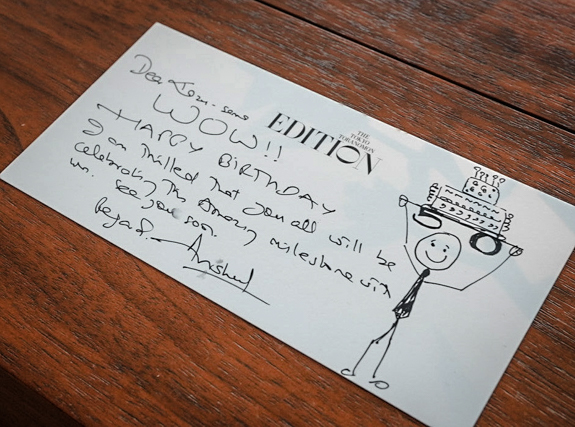 Dear Tom-sama
THE
TOKYO
TORANOMON
EDITION
WOW!!
HAPPY BIRTHDAY
I am thrilled that you all will be
celebrating this amazing milestone with
us. See you soon.
Regard.